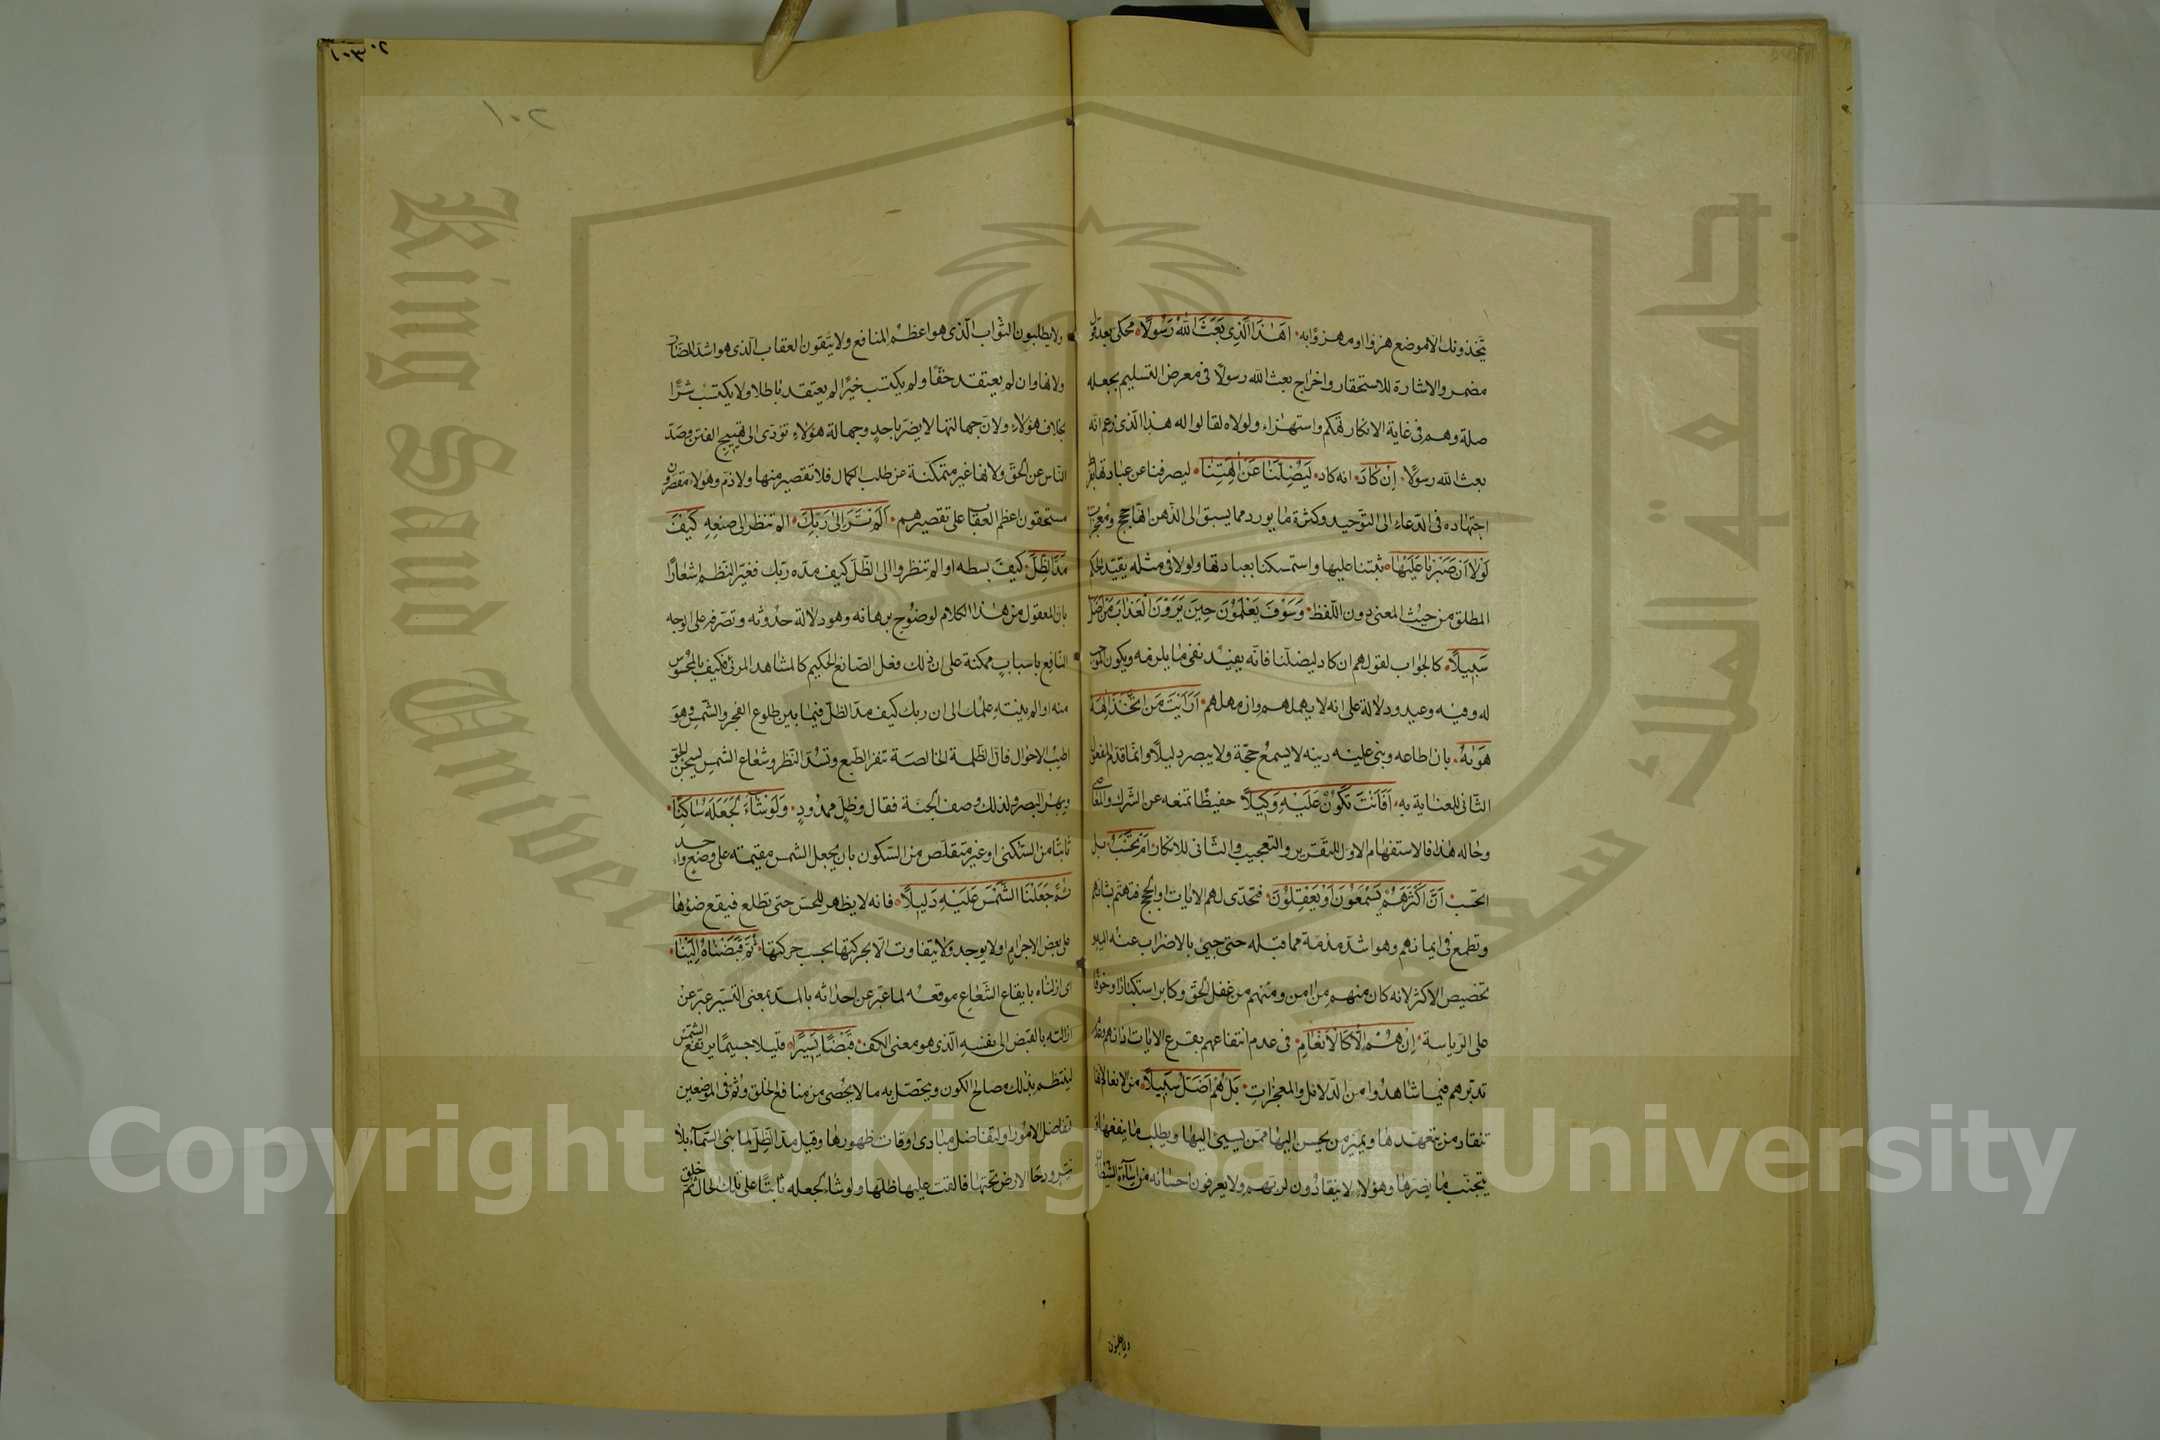 يتخذونك الا موضع هزؤا او مهزؤا به اهذا الذي بعث الله رسولا محكى بعد قول
مضمر والاشارة للاستحقار واخراج بعث الله رسولا فى معرض التسليم بجعله
صلة وهم فى غاية الانكار تهكم واستهزاء ولولاه لقالوا له هذا الذى زعم انه
بعث الله رسولا ان كاد انه كاد ليضلنا عن الهتنا ليصرفنا عن عبادتها بفرط
اجتهاده فى الدعاء الى التوحيد وكثرة ما يورد مما يسبق الى الذهن انها حجج ومعجزات
لولا ان صبرنا عليها ثبتنا عليها واستمسكنا بعبادتها ولولا فى مثله يقيد الحكم
المطلق من حيث المعنى دون اللفظ وسوف يعلمون حين يرون العذاب من اضل
سبيلا كالجواب لقولهم ان كاد ليضلنا فانه يفيد نفى ما يلزمه ويكون الموجب
له وفيه وعيد ودلالة على انه لا يهملهم وان مهلهم ارايت من اتخذ الهه
هويه بان اطاعه وبنى عليه دينه لا يسمع حجة ولا يبصر دليلا وانما قدم المفعول
الثانى للعناية به افانت تكون عليه وكيلا حفيظا تمنعه عن الشرك والمعاصى
وحاله هذا فالاستفهام الاول للتقرير والتعجيب والثانى للانكار ام تحسب بل
اتحسب ان اكثرهم يسمعون او يعقلون فتجدى لهم الايات او الحجج فتهتم بشانهم
وتطمع فى ايمانهم وهو اشد مذمة مما قبله حتى جيئ بالاضراب عنه اليه و
تخصيص الاكثر لانه كان منهم من امن ومنهم من عقل الحق وكابر استكبارا وخوفا
على الرياسة ان هم الا كالانعام فى عدم انتفاعهم بقرع الايات اذانهم وعدم
تدبرهم فيما شاهدوا من الدلائل والمعجزات بل هم اضل سبيلا من الانعام لانها
تنقاد من يتعهدها ويميز من يحسن اليها ممن يسيئ اليها ويطلب ما ينفعها و
يتجنب ما يضرها وهؤلاء لا ينقادون لربهم ولا يعرفون احسانه من اساءة الشيطان
ولا يطلبون
١٠٢
ولا يطلبون الثواب الذى هو اعظم المنافع ولا يتقون العقاب الذى هو اشد المضار
ولانها وان لم يعتقد حقا ولم يكتسب خيرا لم يعتقد باطلا ولا يكتسب شرا
بخلاف هؤلاء ولان جهالتها لا يضر باحد وجهالة هؤلاء تؤدى الى تهييج الفتن وصد
الناس عن الحق ولانها غير متمكنة عن طلب الكمال فلا تقصير منها ولا ذم وهؤلاء مقصرون
مستحقون اعظم العقاب على تقصيرهم الم تر الى ربك الم تنظر الى صنعه كيف
مد الظل كيف بسطه او الم تنظروا الى الظل كيف مده ربك فغير النظم اشعارا
بان المعقول من هذا الكلام لوضوح برهانه وهو دلالة حدوثه وتصرفه على الوجه
النافع باسباب ممكنة على ان ذلك فعل الصانع الحكيم كالمشاهد المرئى فكيف بالمحسوس
منه او الم ينته علمك الى ان ربك كيف مد الظل فيما بين طلوع الفجر والشمس وهو
اطيب الاحوال فان الظلمة الخالصة تنفر الطبع وتسد النظر وشعاع الشمس يسخن الجو
ويبهر البصر ولذلك وصف الجنة فقال وظل ممدود ولو شاء لجعله ساكنا
ثابتا من السكنى او غير متقلص من السكون بان يجعل الشمس مقيمة على وضع واحد
ثم جعلنا الشمس عليه دليلا فانه لا يظهر للحس حتى تطلع فيقع ضوؤها
على بعض الاجرام او لا يوجد ولا يتفاوت الا بحركتها بحسب حركتها ثم قبضناه الينا
اى ازلناه بايقاع الشعاع موقعه لما عبر عن احداثه بالمد بمعنى التسير عبر عن
ازالته بالقبض الى نفسه الذى هو معنى الكف قبضا يسيرا قليلا حسبما يرتفع الشمس
لينتظم بذلك مصالح الكون ويتحصل به ما لا يحصى من منافع الخلق وثم فى الموضعين
لتفاضل الامور او لتفاضل مبادى اوقات ظهورها وقيل مد الظل لما بنى السماء بلا
نير ودحا الارض تحتها فالقت عليها ظلها ولو شاء لجعله ثابتا على تلك الحال ثم خلق
King Saud University
جامعة الملك سعود
1957
Copyright © King Saud University